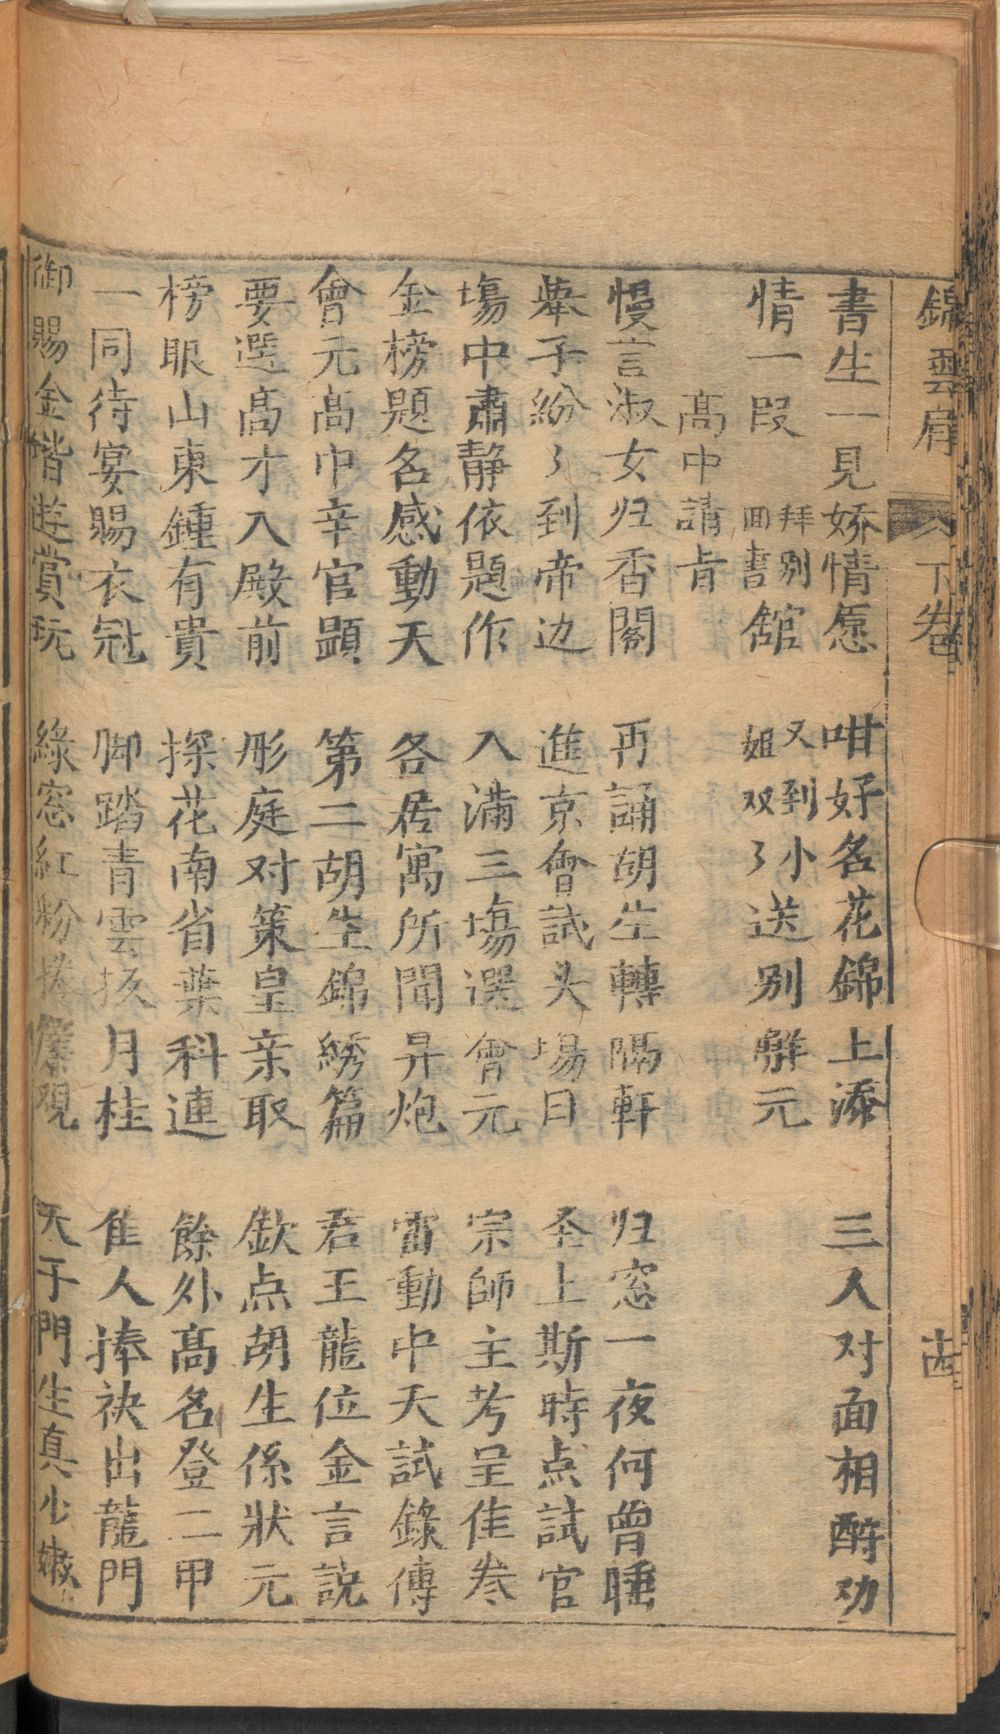 錦雲肩 下卷 十四
書生一見娇情愿 咁好名花錦上添 三人对面相酧劝
情一段 拜别回書舘 又到小姐双〻送别觧元
高中請旨
慢言淑女归香閣 再誦胡生轉隔軒 归窓一夜何曾睡
舉子紛〻到帝边 進京會試头場日 圣上斯時点試官
塲中肅静依題作 入滿三塲選會元 宗師主考呈佳卷
金榜題名感動天 各居寓所聞昇炮 雷動中天試錄傳
會元高中辛官顕 第二胡生錦綉篇 君王龍位金言說
要選高才入殿前 彤庭对策皇亲取 欽点胡生係狀元
榜眼山東鍾有貴 探花南省葉科連 餘外高名登二甲
一同待宴賜衣冠 脚踏青雲扳月桂 佳人捧袂出龍門
御賜金堦遊賞玩 綠窓紅粉捲簾观 天子門生真少嫩